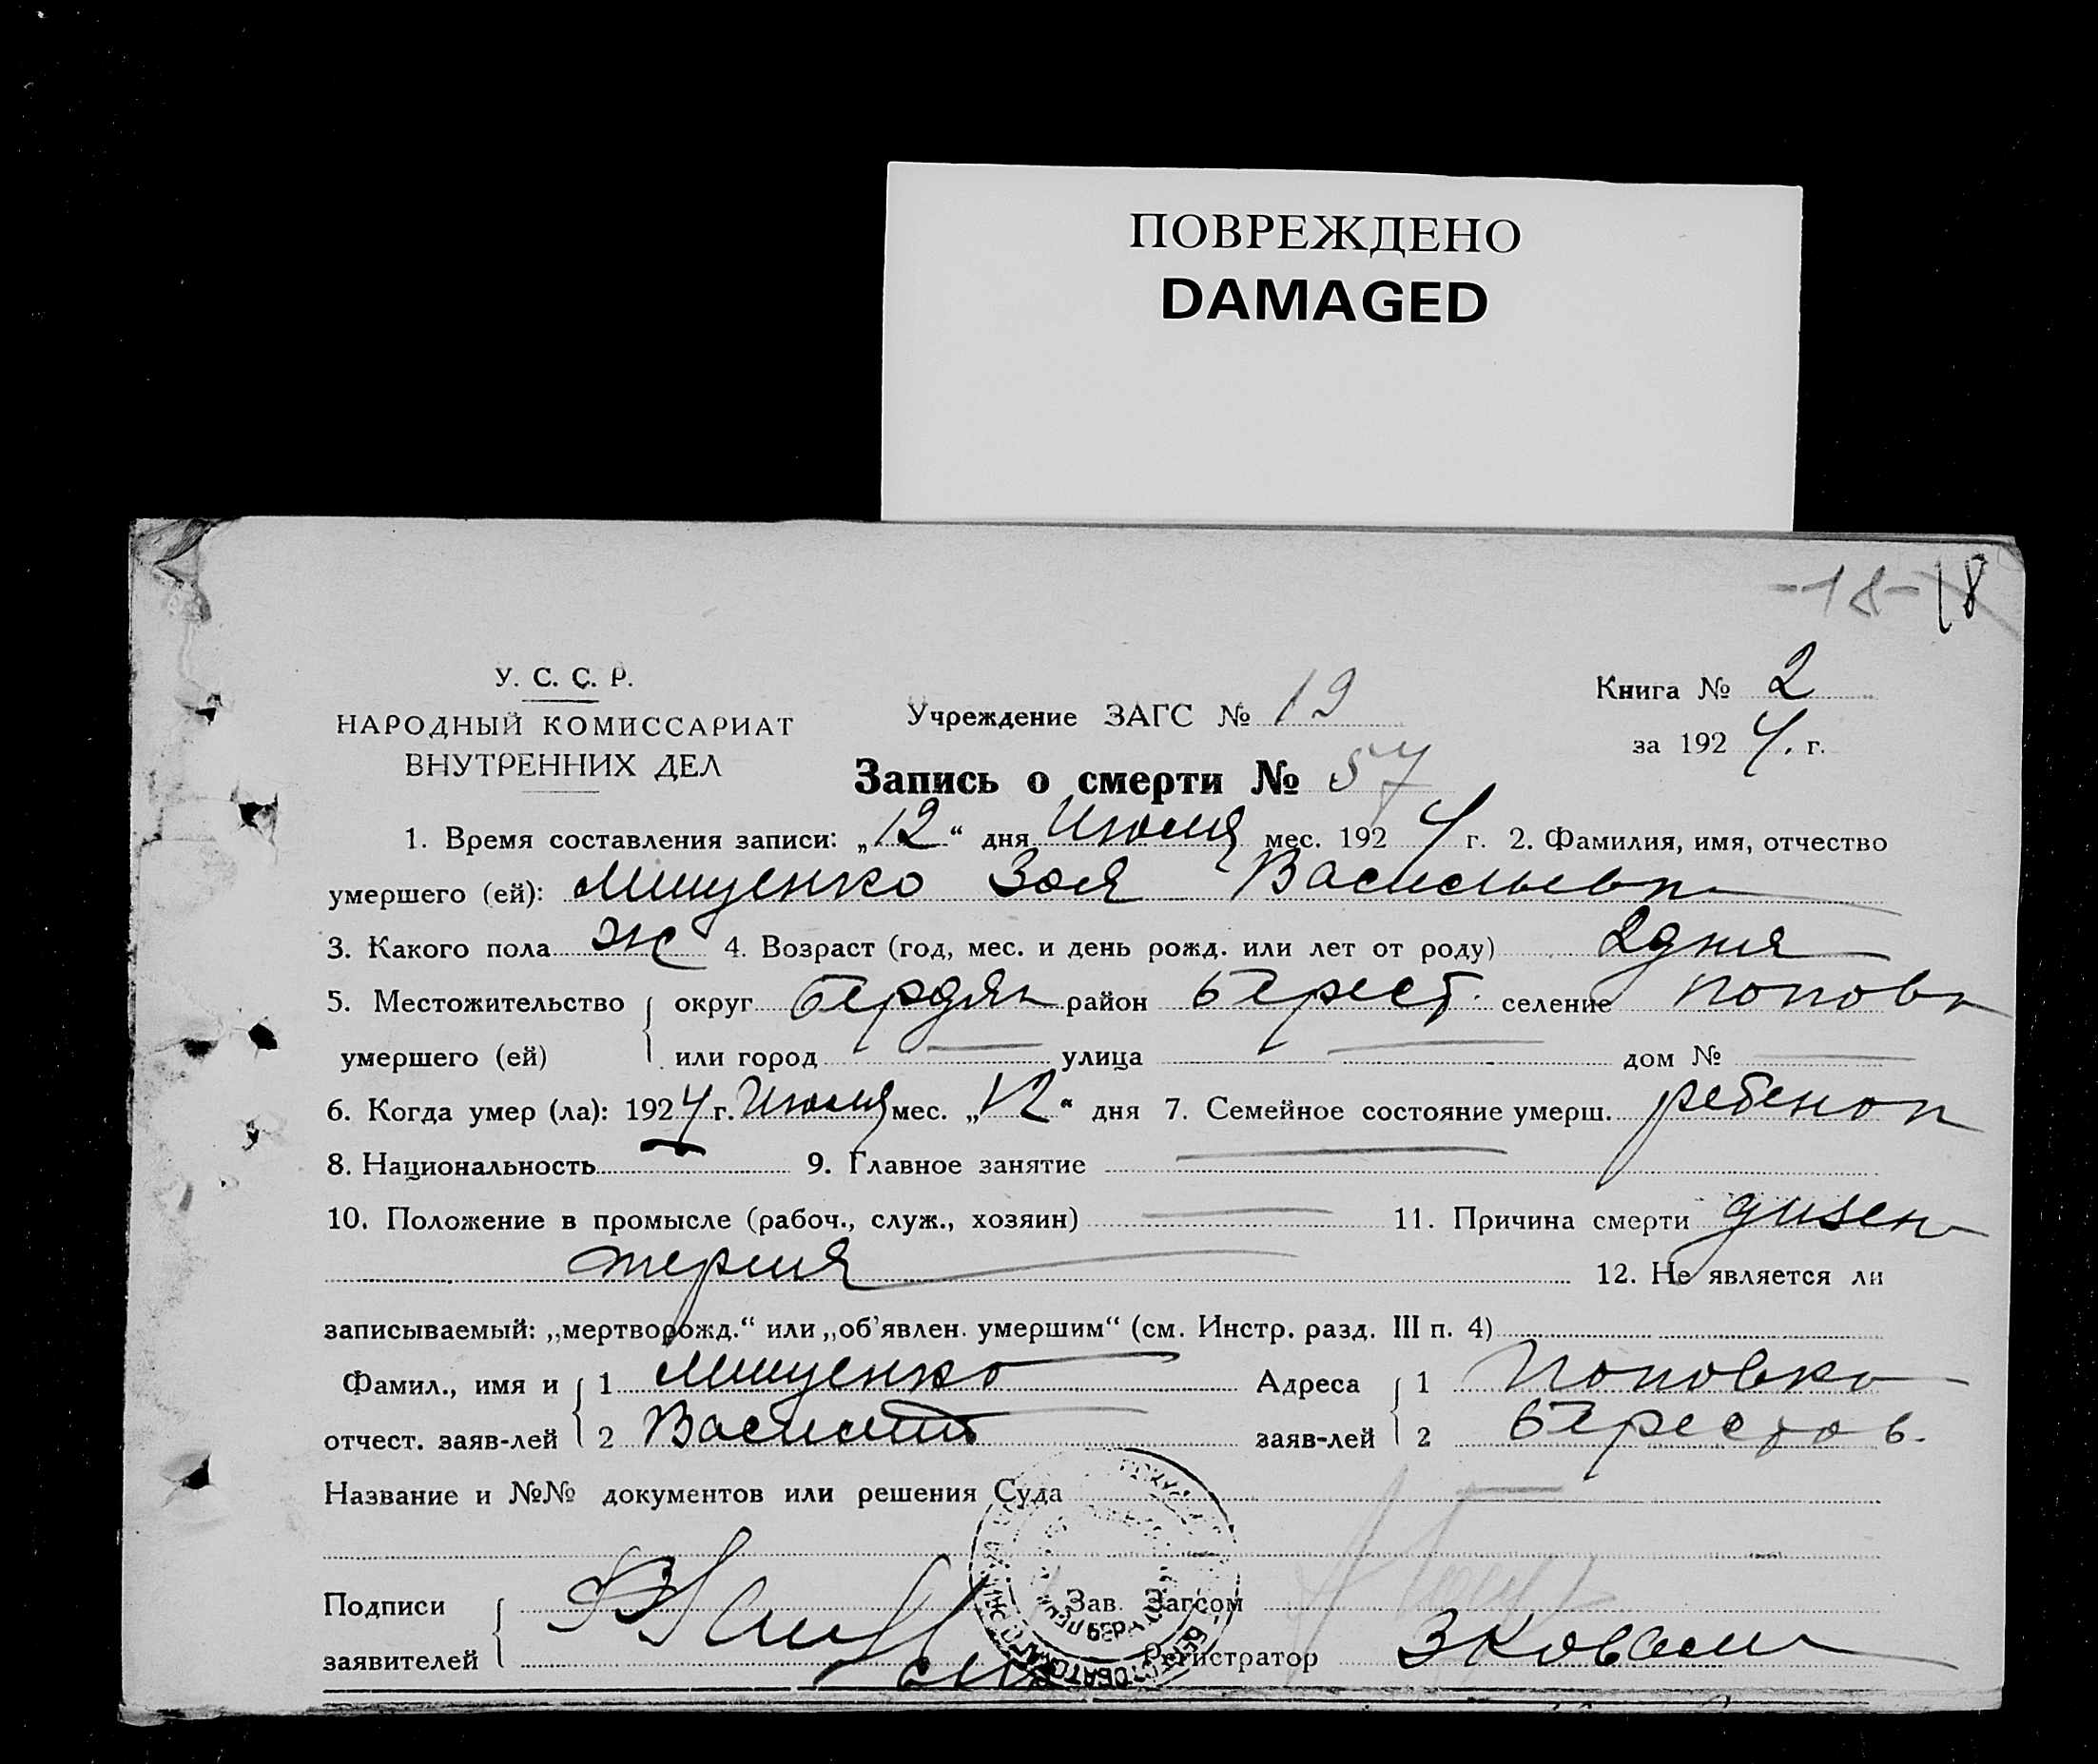 ПОВРЕЖДЕНО
DAMAGED
-18- 18
У. С. С. Р.
НАРОДНЫЙ КОМИССАРИАТ
ВНУТРЕННИХ ДЕЛ
Учреждение ЗАГС № 19
Книга № 2
за 1924. г.
Запись о смерти № 57
1. Время составления записи: „12“ дня Июля мес. 1924 г. 2. Фамилия, имя, отчество
умершего (ей): Мищенко Зоя Васильевн
3. Какого пола ж 4. Возраст (год, мес. и день рожд. или лет от роду) 2 дня
5. Местожительство округ Бердян район Берест. селение Поповк
умершего (ей) или город — улица — дом № —
6. Когда умер (ла): 1924 г. Июля мес. „12“ дня 7. Семейное состояние умерш. ребенок
8. Национальность — 9. Главное занятие —
10. Положение в промысле (рабоч., служ., хозяин) — 11. Причина смерти дизен
терия 12. Не является ли
записываемый: „мертворожд.“ или „об’явлен. умершим“ (см. Инстр. разд. III п. 4)
Фамил., имя и 1 Мищенко Адреса 1 Поповка
отчест. заяв-лей 2 Василий заяв-лей 2 Берестов.
Название и №№ документов или решения Суда —
Подписи Зав. Загсом
заявителей Регистратор ЗКовали